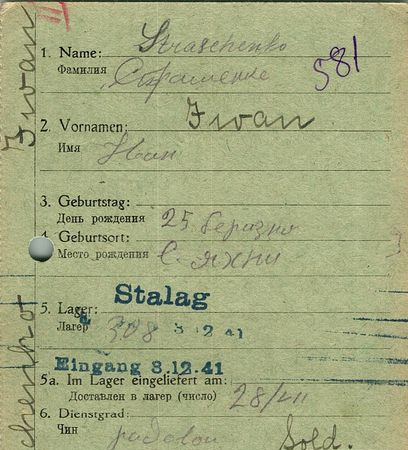 1. Name: Straschenko
Фамилия Страшенко
581
2. Vornamen: Iwan
Имя Иван
3. Geburtstag:
День рождения 25 березня
4. Geburtsort:
Место рождения С. Яхни
5. Lager: Stalag
Лагерь 308 8.12.41
Eingang 8.12.41
5a. Im Lager eingeliefert am:
Доставлен в лагерь (число) 28/VII
6. Dienstgrad:
Чин Sold.
Iwan
chenko